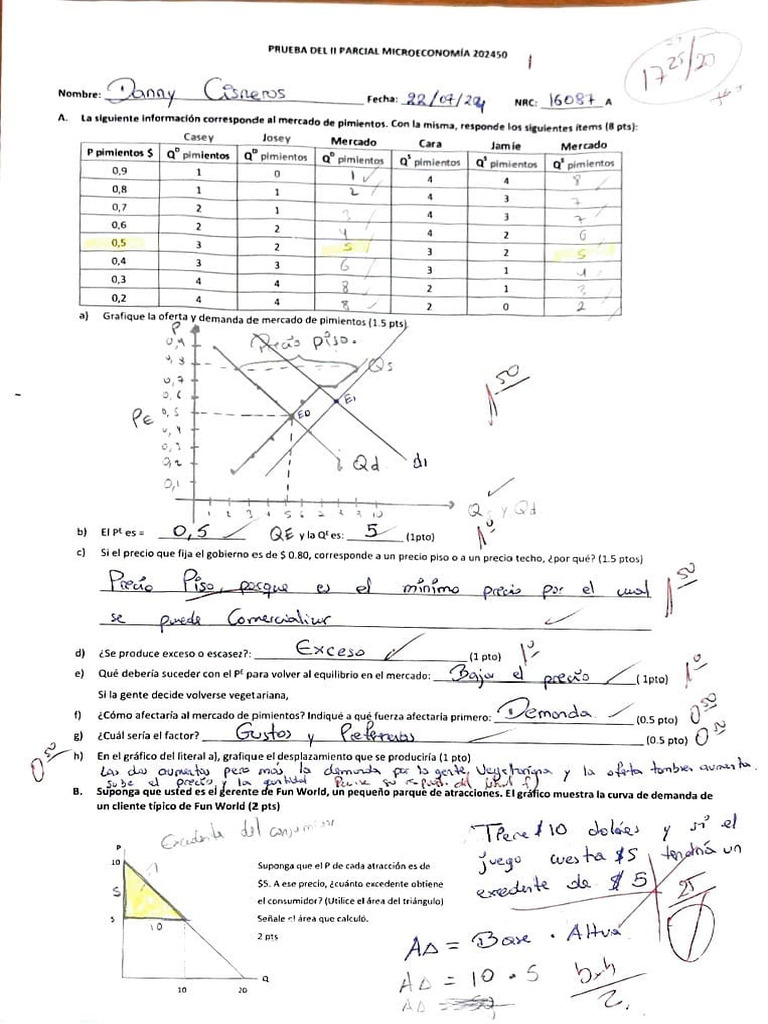 PRUEBA DEL II PARCIAL MICROECONOMÍA 202450
17 25/20
Nombre: Danny Cisneros Fecha: 22/07/24 NRC: 16087 A
A. La siguiente información corresponde al mercado de pimientos. Con la misma, responde los siguientes ítems (8 pts):
Casey Josey Mercado Cara Jamie Mercado
P pimientos $ Qᴰ pimientos Qᴰ pimientos Qᴰ pimientos Qˢ pimientos Qˢ pimientos Qˢ pimientos
0,9 1 0 1 4 4 8
0,8 1 1 2 4 3 7
0,7 2 1 3 4 3 7
0,6 2 2 4 4 2 6
0,5 3 2 5 3 2 5
0,4 3 3 6 3 1 4
0,3 4 4 8 2 1 3
0,2 4 4 8 2 0 2
a) Grafique la oferta y demanda de mercado de pimientos (1.5 pts)
P
Precio piso.
0,9
0,8
Qs
0,7
0,6
E1
PE 0,5
E0
0,4
0,3
0,2
Qd d1
0,1
1 2 3 4 5 6 7 8 9 10
Qs y Qd
1 50
b) El Pᴱ es = 0,5 QE y la Qᴱ es: 5 (1pto)
c) Si el precio que fija el gobierno es de $ 0.80, corresponde a un precio piso o a un precio techo, ¿por qué? (1.5 ptos)
Precio Piso, porque es el mínimo precio por el cual
se puede Comercializar
1 50
d) ¿Se produce exceso o escasez?: Exceso (1 pto)
e) Qué debería suceder con el Pᴱ para volver al equilibrio en el mercado: Bajar el precio (1pto)
Si la gente decide volverse vegetariana,
f) ¿Cómo afectaría al mercado de pimientos? Indiqué a qué fuerza afectaría primero: Demanda (0.5 pto)
g) ¿Cuál sería el factor? Gustos y Preferencias (0.5 pto)
0 50
h) En el gráfico del literal a), grafique el desplazamiento que se produciría (1 pto)
Las dos aumentas pero más la demanda por la gente Vegetariana y la oferta tambien aumenta.
sube el precio y la cantidad
B. Suponga que usted es el gerente de Fun World, un pequeño parque de atracciones. El gráfico muestra la curva de demanda de
un cliente típico de Fun World (2 pts)
Excedente del consumidor
P
10
5
5
10
10 20 Q
Suponga que el P de cada atracción es de
$5. A ese precio, ¿cuánto excedente obtiene
el consumidor? (Utilice el área del triángulo)
Señale el área que calculó.
2 pts
Tiene $10 dolares y si el
juego cuesta $5 tendría un
exedente de $5
A∆ = Base · Altura
A∆ = 10 · 5
A∆ =
bxh
2.